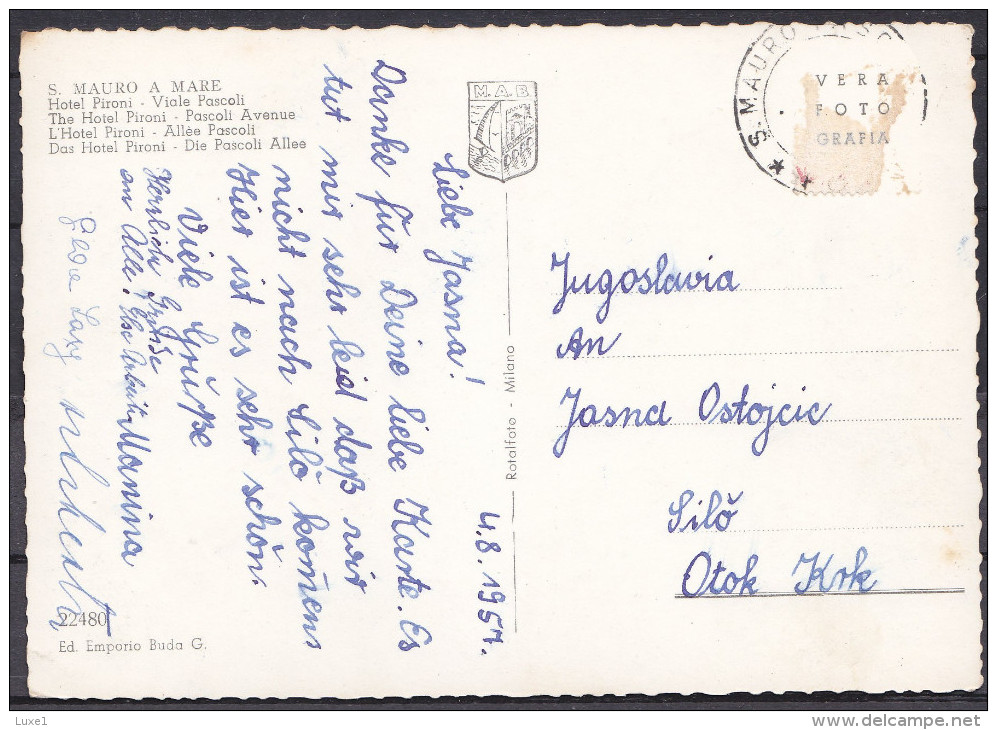 S. MAURO A MARE
Hotel Pironi - Viale Pascoli
The Hotel Pironi - Pascoli Avenue
L'Hotel Pironi - Allèe Pascoli
Das Hotel Pironi - Die Pascoli Allee
M. A. B.
S. MAURO
VERA
FOTO
GRAFIA
4.8.1957.
Liebe Jasna!
Danke für Deine liebe Karte. Es
tut mir sehr leid daß wir
nicht nach Silŏ kom̄en
Hier ist es sehr schön.
Viele Grüße
Marina
Herzliche Grüsse
an Alle!
Rotalfoto - Milano
Jugoslavia
An
Jasna Ostojcic
Silŏ
Otok Krk
22480
Ed. Emporio Buda G.
Luxe1
www.delcampe.net